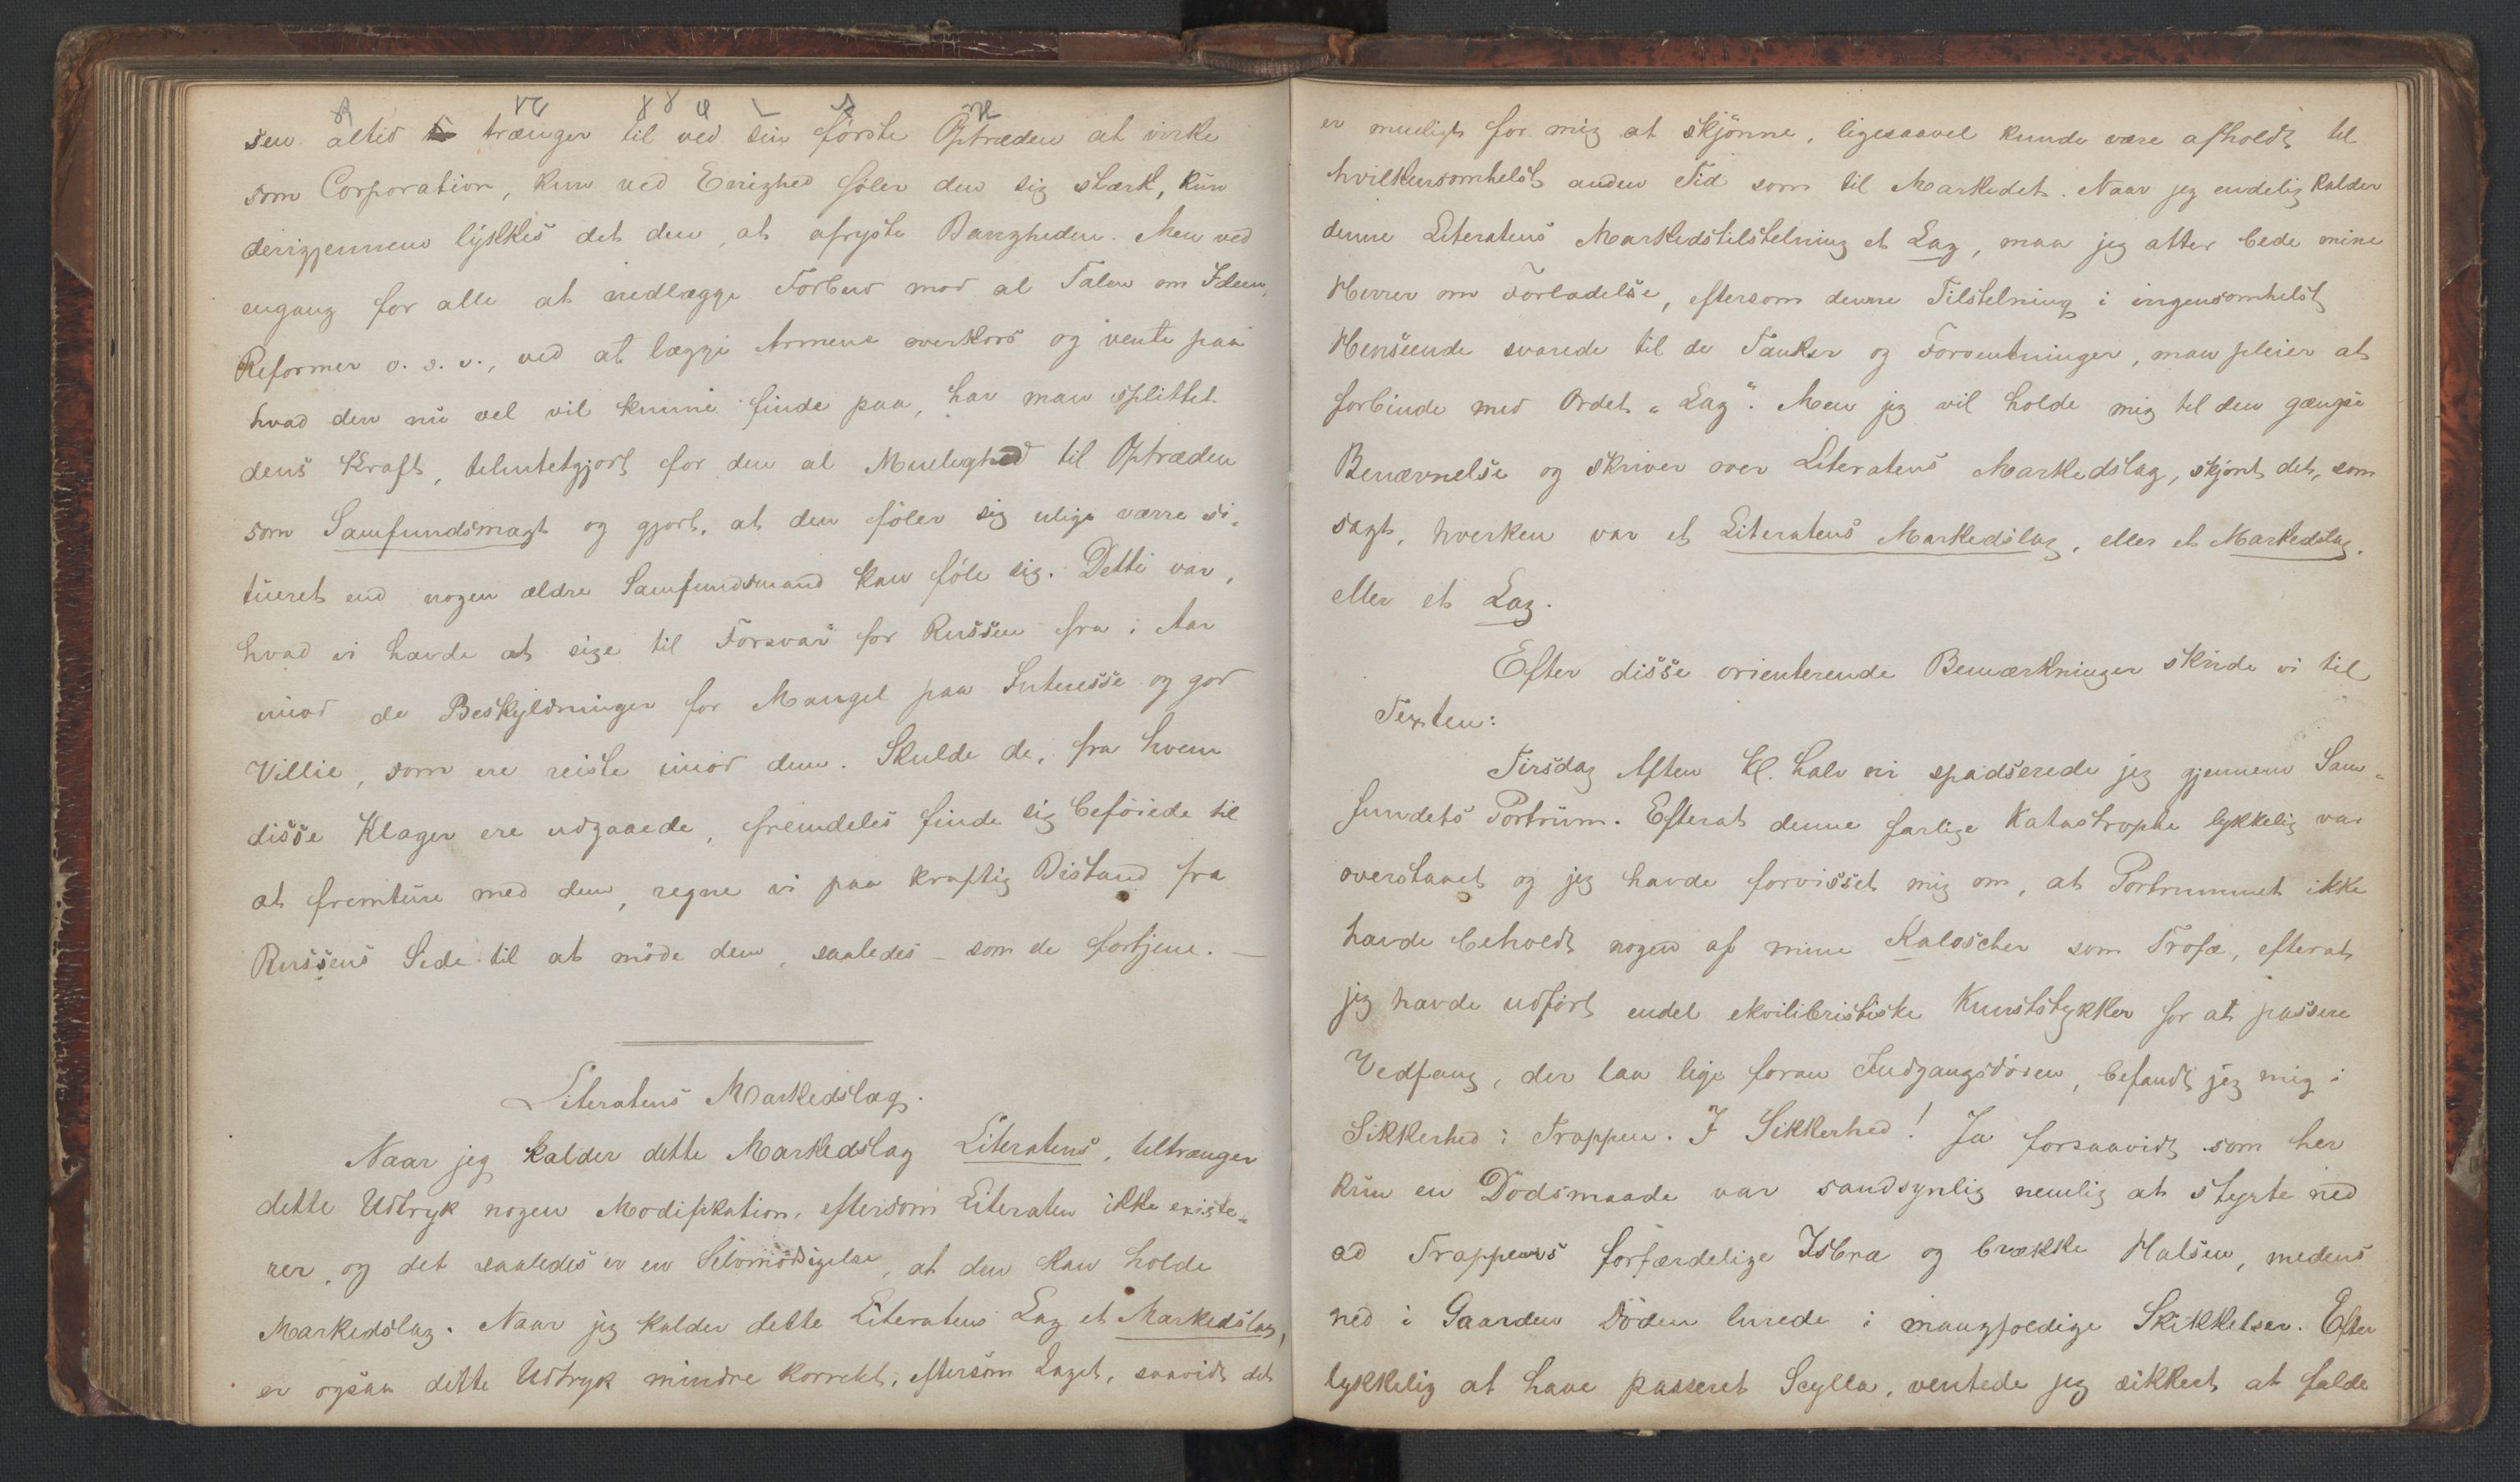 sen altid trænger til ved sin første Optræden at virke
som Corporation, kun ved Enighed føler den sig stærk, kun
derigjennem lykkes det den, at afryste Bangheden. Men ved
engang for alle at nedlægge Forbud mod al Talen om Ideer,
Reformer o. s. v., ved at lægge Armene overkors og vente paa
hvad den nu vel vil kunne finde paa, har man splittet
dens Kraft, tilintetgjort for den al Muelighed til Optræden
som Samfundsmagt og gjort, at den føler sig ulige værre si-
tueret end nogen ældre Samfundsmand kan føle sig. Dette var,
hvad vi havde at sige til Forsvar for Russen fra i Aar
imod de Beskyldninger for Mangel paa Interesse og god
Villie, som ere reiste imod dem. Skulde de, fra hvem
disse Klager ere udgaaede, fremdeles finde sig beføiede til
at fremture med dem, regne vi paa kraftig Bistand fra
Russens Side til at møde dem, saaledes - som de fortjene. —
Literatens Markedslag.
Naar jeg kalder dette Markedslag Literatens, tiltrænger
dette Udtryk nogen Modifikation, eftersom Literaten ikke existe-
rer, og det saaledes er en Selvmodsigelse, at den kan holde
Markedslag. Naar jeg kalder dette Literatens Lag et Markedslag,
er ogsaa dette Udtryk mindre korrekt, eftersom Laget, saavidt det
er mueligt for mig at skjønne, ligesaavel kunde være afholdt til
hvilkensomhelst anden Tid som til Markedet. Naar jeg endelig kalder
denne Literatens Markedstilstelning et Lag, maa jeg atter bede mine
Herrer om Forladelse, eftersom denne Tilstelning i ingensomhelst
Henseende svarede til de Tanker og Forventninger, man pleier at
forbinde med Ordet "Lag". Men jeg vil holde mig til den gængse
Benævnelse og skriver over Literatens Markedslag, skjønt det, som
sagt, hverken var et Literatens Markedslag, eller et Markedslag,
eller et Lag.
Efter disse orienterende Bemærkninger skride vi til
Texten:
Tirsdag Aften Kl. halv ni spadserede jeg gjennem Sam-
fundets Portrum. Efterat denne farlige Katastrophe lykkelig var
overstaaet og jeg havde forvisset mig om, at Portrummet ikke
havde beholdt nogen af mine Kaloscher som Trofæ, efterat
jeg havde udført endel ekvilibristiske Kunststykker for at passere
Vedfang, der laa lige foran Indgangsdøren, befandt jeg mig i
Sikkerhed i Trappen. I Sikkerhed! Ja forsaavidt som her
kun en Dødsmaade var sandsynlig nemlig at styrte ned
ad Trappens forfærdelige Isbræ og brække Halsen, medens
ned i Gaarden Døden lurede i mangfoldige Skikkelser. Efter
lykkelig at have passeret Scylla, ventede jeg sikkert at falde